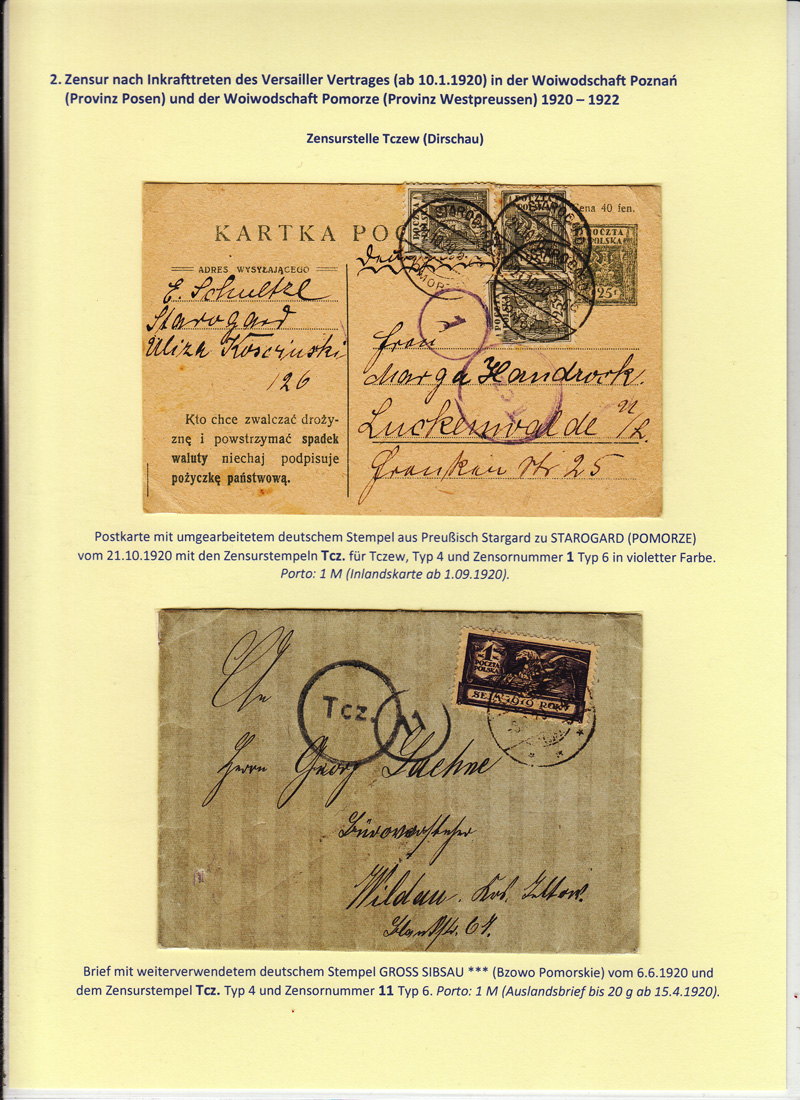 2. Zensur nach Inkrafttreten des Versailler Vertrages (ab 10.1.1920) in der Woiwodschaft Poznań
(Provinz Posen) und der Woiwodschaft Pomorze (Provinz Westpreussen) 1920 – 1922
Zensurstelle Tczew (Dirschau)
Cena 40 fen.
KARTKA POC
POCZTA
POLSKA
25
STAROGARD
ADRES WYSYŁAJĄCEGO
E. Schultze
Starogard
Uliza Kosciuski
126
Kto chce zwalczać droży-
znę i powstrzymać spadek
waluty niechaj podpisuje
pożyczkę państwową.
1
Tcz.
Frau
Marga Handrock.
Luckenwalde
Franken str 25
Postkarte mit umgearbeitetem deutschem Stempel aus Preußisch Stargard zu STAROGARD (POMORZE)
vom 21.10.1920 mit den Zensurstempeln Tcz. für Tczew, Typ 4 und Zensornummer 1 Typ 6 in violetter Farbe.
Porto: 1 M (Inlandskarte ab 1.09.1920).
1
POCZTA
POLSKA
SEJM 1919 ROKU
An
Tcz.
11
Herrn Georg Jaehne
Bürovorsteher
Wildau. Krs. Teltow.
Brief mit weiterverwendetem deutschem Stempel GROSS SIBSAU *** (Bzowo Pomorskie) vom 6.6.1920 und
dem Zensurstempel Tcz. Typ 4 und Zensornummer 11 Typ 6. Porto: 1 M (Auslandsbrief bis 20 g ab 15.4.1920).